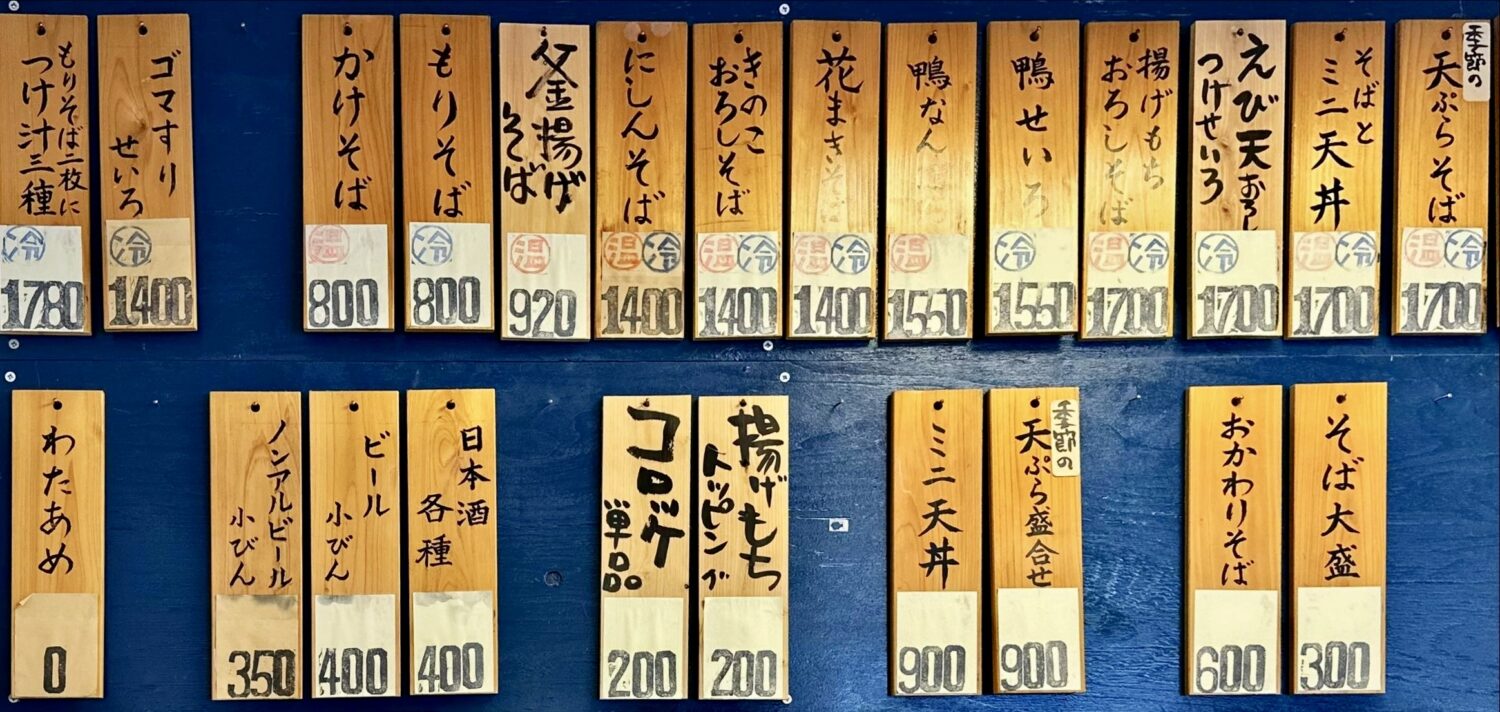 季節の
天ぷらそば
温 冷
1700
そばと
ミニ天丼
温 冷
1700
えび天おろし
つけせいろ
冷
1700
揚げもち
おろしそば
温 冷
1700
鴨せいろ
冷
1550
鴨なん
温
1550
花まきそば
温 冷
1400
きのこ
おろしそば
温 冷
1400
にしんそば
温 冷
1400
釜揚げ
そば
温
920
もりそば
冷
800
かけそば
温
800
ゴマすり
せいろ
冷
1400
もりそば二枚に
つけ汁三種
冷
1780
そば大盛
300
おかわりそば
600
季節の
天ぷら盛合せ
900
ミニ天丼
900
揚げもち
トッピング
200
コロッケ
単品
200
日本酒
各種
400
ビール
小びん
400
ノンアルビール
小びん
350
わたあめ
0